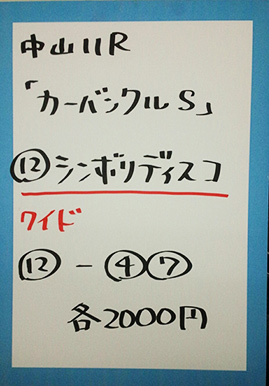 中山11R
「カーバンクルS」
⑫シンボリディスコ
ワイド
⑫－④⑦
各2000円